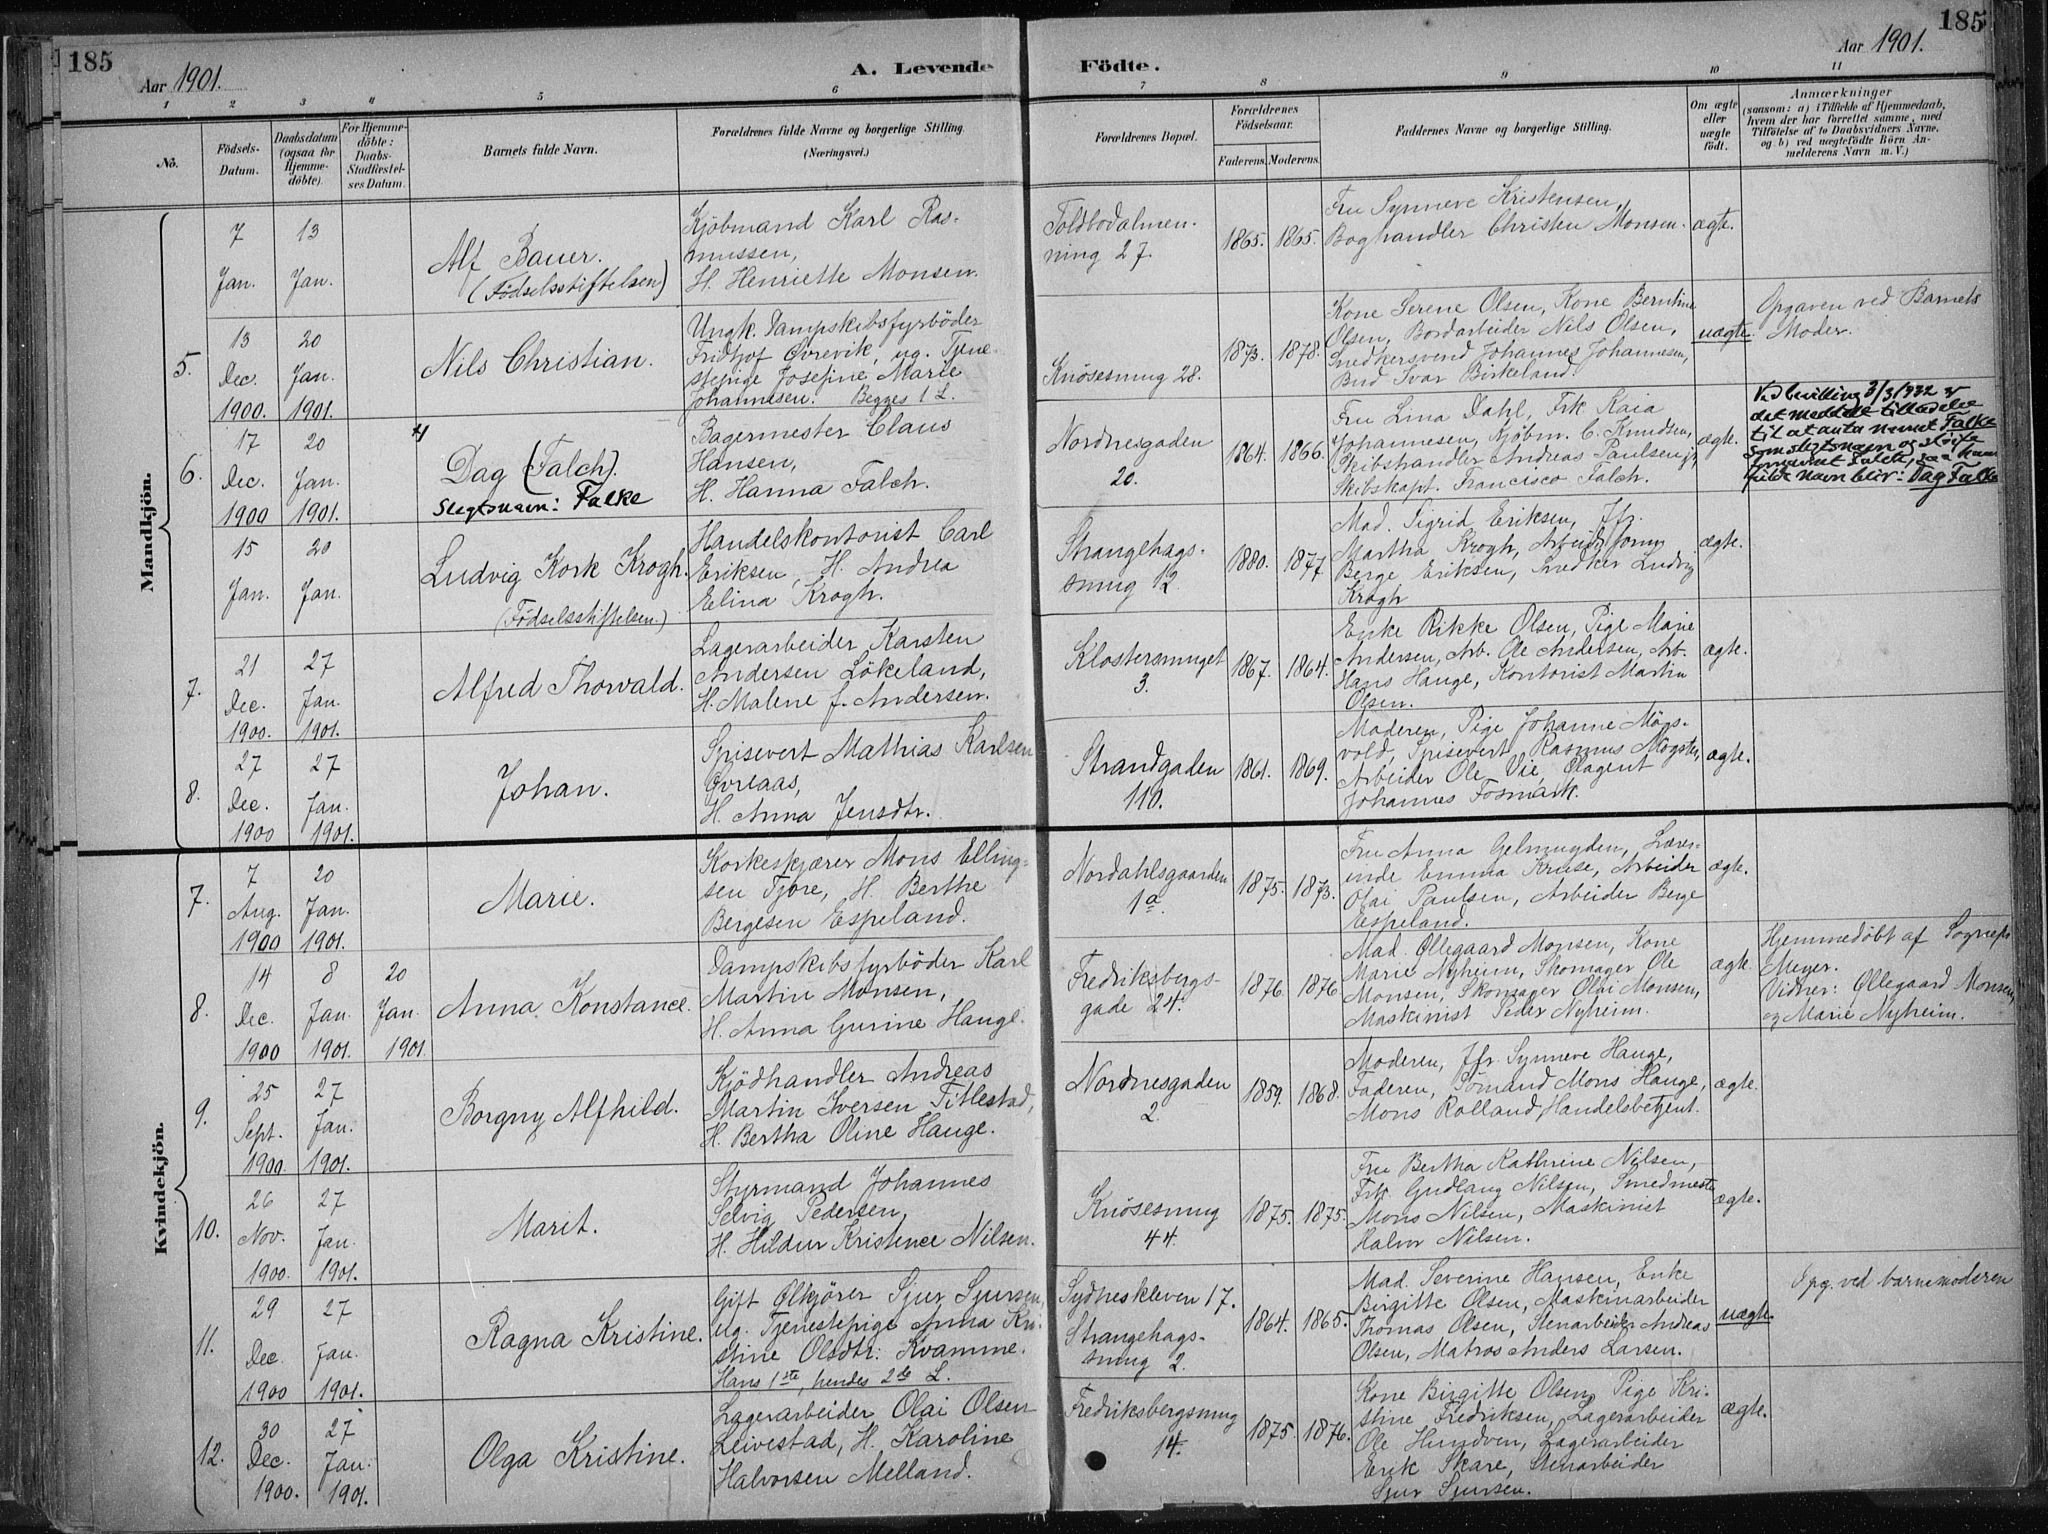 185
Aar 1901.
A. Levende Födte.
Aar 1901.
185
1 2 3 4 5 6 7 8 9 10 11
No.
Födsels-
Datum.
Daabsdatum
(ogsaa for
Hjemme-
döbte).
For Hjemme-
döbte:
Daabs-
Stadfæstel-
ses Datum.
Barnets fulde Navn.
Forældrenes fulde Navne og borgerlige Stilling.
(Næringsvei.)
Forældrenes Bopæl.
Forældrenes
Födselsaar.
Faderens. Moderens.
Faddernes Navne og borgerlige Stilling.
Om ægte
eller
uægte
födt.
Anmærkninger
(saasom: a) i Tilfælde af Hjemmedaab,
hvem der har forrettet samme, med
Tilföielse af to Daabsvidners Navne,
og b) ved uægtefödte Börn An-
melderens Navn m. V.)
Mandkjön.
7
Jan.
13
Jan.
Alf Bauer.
(Födselsstiftelsen)
Kjöbmand Karl Ras-
mussen,
H. Henriette Monsen.
Toldbodalmen-
ning 27.
1865. 1865.
Fru Synneve Kristensen,
Boghandler Christen Monsen.
ægte.
5.
13
Dec.
1900.
20
Jan.
1901.
Nils Christian.
Ungk. Dampskibsfyrböder
Fridtjof Övrevik, ug. Tjene-
stepige Josefine Marie
Johannesen. Begges 1 L.
Knösesmug 28.
1873. 1878.
Kone Serene Olsen, Kone Berntine
Olsen, Bordarbeider Nils Olsen,
Snedkersvend Johannes Johannesen,
Bud Ivar Birkeland.
uægte.
Opgaven ved Barnets
Moder.
6.
17
Dec.
1900
20
Jan.
1901.
Dag (Falch).
Slegtsnavn: Falke
Bagermester Claus
Hansen,
H. Hanna Falch.
Nordnesgaden
20.
1864. 1866.
Fru Lina Dahl, Frk Kaia
Johannesen, Kjöbm. C. Knudsen,
Skibshandler Andreas Paulsen jr,
Skibskapt. Francisco Falch.
ægte.
Ved bevilling 3/3 1932 er
det meddelt tilladelse
til at anta navnet Falke
som slegtsnavn og sløife
fornavnet Falch, saa hans
fulde navn blir: Dag Falke
15
Jan.
20
Jan.
Ludvig Kork Krogh.
(Födselsstiftelsen.)
Handelskontorist Carl
Eriksen, H. Andrea
Elina Krogh.
Strangehags-
smug 12.
1880. 1877
Mad. Sigrid Eriksen, Jfr.
Martha Krogh, Arbeidsform.
Berge Eriksen, Snedker Ludvig
Krogh
ægte.
7.
21
Dec.
1900.
27
Jan.
1901.
Alfred Thorvald.
Lagerarbeider Karsten
Andersen Lökeland,
H. Malene f. Andersen.
Klostersmuget
3.
1867. 1864.
Enke Rikke Olsen, Pige Marie
Andersen, Arb. Ole Andersen, Arb.
Hans Hauge, Kontorist Martin
Olsen.
ægte.
8.
27
Dec.
1900
27
Jan.
1901.
Johan.
Spisevert Mathias Karlsen
Övrlaas,
H. Anna Jensdtr.
Strandgaden
110.
1861. 1869.
Moderen, Pige Johanne Mögs-
vold, Spisevert Rasmus Mögster,
Arbeider Ole Vie, Ölagent
Johannes Fosmark.
ægte.
Kvindekjön.
7.
7
Aug.
1900
20
Jan.
1901.
Marie.
Korkeskjærer Mons Elling-
sen Tjore, H. Berthe
Bergesen Espeland.
Nordahlsgaarden
1a.
1875. 1873.
Fru Anna Gelmuyden, Lærer-
inde Emma Kruse, Arbeider
Olai Paulsen, Arbeider Berge
Espeland.
ægte.
8.
14
Dec.
1900
8
Jan.
1901.
20
Jan.
1901.
Anna Konstance.
Dampskibsfyrböder Karl
Martin Monsen,
H. Anna Gurine Hauge.
Fredriksbergs-
gade 24.
1876. 1876
Mad. Øllegaard Monsen, Kone
Marie Nyheim, Skomager Ole
Monsen, Skomager Olai Monsen,
Maskinist Peder Nyheim.
ægte.
Hjemmedöbt af Sognepr
Meyer.
Vidner: Øllegaard Monsen,
og Marie Nyheim.
9.
25
Sept.
1900.
27
Jan.
1901.
Borgny Alfhild.
Kjödhandler Andreas
Martin Iversen Titlestad,
H. Bertha Oline Hauge.
Nordnesgaden
2.
1859. 1868.
Moderen, Jfr. Synneve Hauge,
Faderen, Sömand Mons Hauge,
Mons Rolland, Handelsbetjent.
ægte.
10.
26
Nov.
1900.
27
Jan.
1901.
Marit.
Styrmand Johannes
Selvig Pedersen,
H. Hildur Kristence Nilsen.
Knösesmug
44.
1875. 1875.
Fru Bertha Kathrine Nilsen,
Frk Gudlaug Nilsen, Smedmester
Mons Nilsen, Maskinist
Halvor Nilsen.
ægte.
11.
29
Dec.
1900
27
Jan.
1901.
Ragna Kristine.
Gift Ölkjörer Sjur Sjursen,
ug. Tjenestepige Anna Kri-
stine Olsdtr. Kvamme.
Hans 1ste, hendes 2de L.
Sydneskleven 17.
Strangehags-
smug 2.
1864. 1865.
Mad. Severine Hansen, Enke
Birgitte Olsen, Maskinarbeider
Thomas Olsen, Stenarbeider Andreas
Olsen, Matros Anders Larsen.
uægte.
Opg. ved barnemoderen
12.
30
Dec.
1900.
27
Jan.
1901.
Olga Kristine.
Lagerarbeider Olai Olsen
Leivestad, H. Karoline
Halvorsen Melland.
Fredriksbergsmug
14.
1875. 1876.
Kone Birgitte Olsen, Pige Kri-
stine Fredriksen, Lagerarbeider
Ole Hundven, Lagerarbeider
Erik Skare, Stenarbeider
Sjur Sjursen.
ægte.